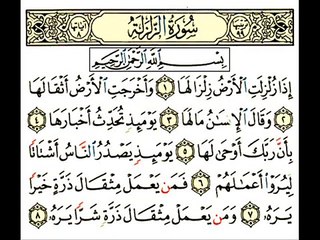 سُورَةُ الزَّلْزَلَةِ
بِسْمِ اللَّهِ الرَّحْمَٰنِ الرَّحِيمِ
إِذَا زُلْزِلَتِ الْأَرْضُ زِلْزَالَهَا ١ وَأَخْرَجَتِ الْأَرْضُ أَثْقَالَهَا
٢ وَقَالَ الْإِنسَٰنُ مَا لَهَا ٣ يَوْمَئِذٍ تُحَدِّثُ أَخْبَارَهَا ٤
بِأَنَّ رَبَّكَ أَوْحَىٰ لَهَا ٥ يَوْمَئِذٍ يَصْدُرُ النَّاسُ أَشْتَاتًا
لِّيُرَوْا أَعْمَٰلَهُمْ ٦ فَمَن يَعْمَلْ مِثْقَالَ ذَرَّةٍ خَيْرًا
يَرَهُ ٧ وَمَن يَعْمَلْ مِثْقَالَ ذَرَّةٍ شَرًّا يَرَهُ ٨